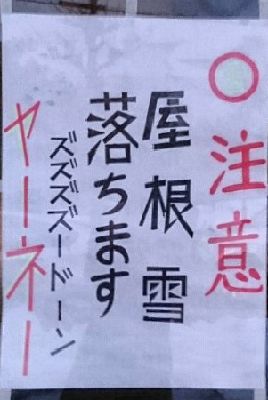 ○注意
屋根雪
落ちます
ズズズズードーン
ヤーネー